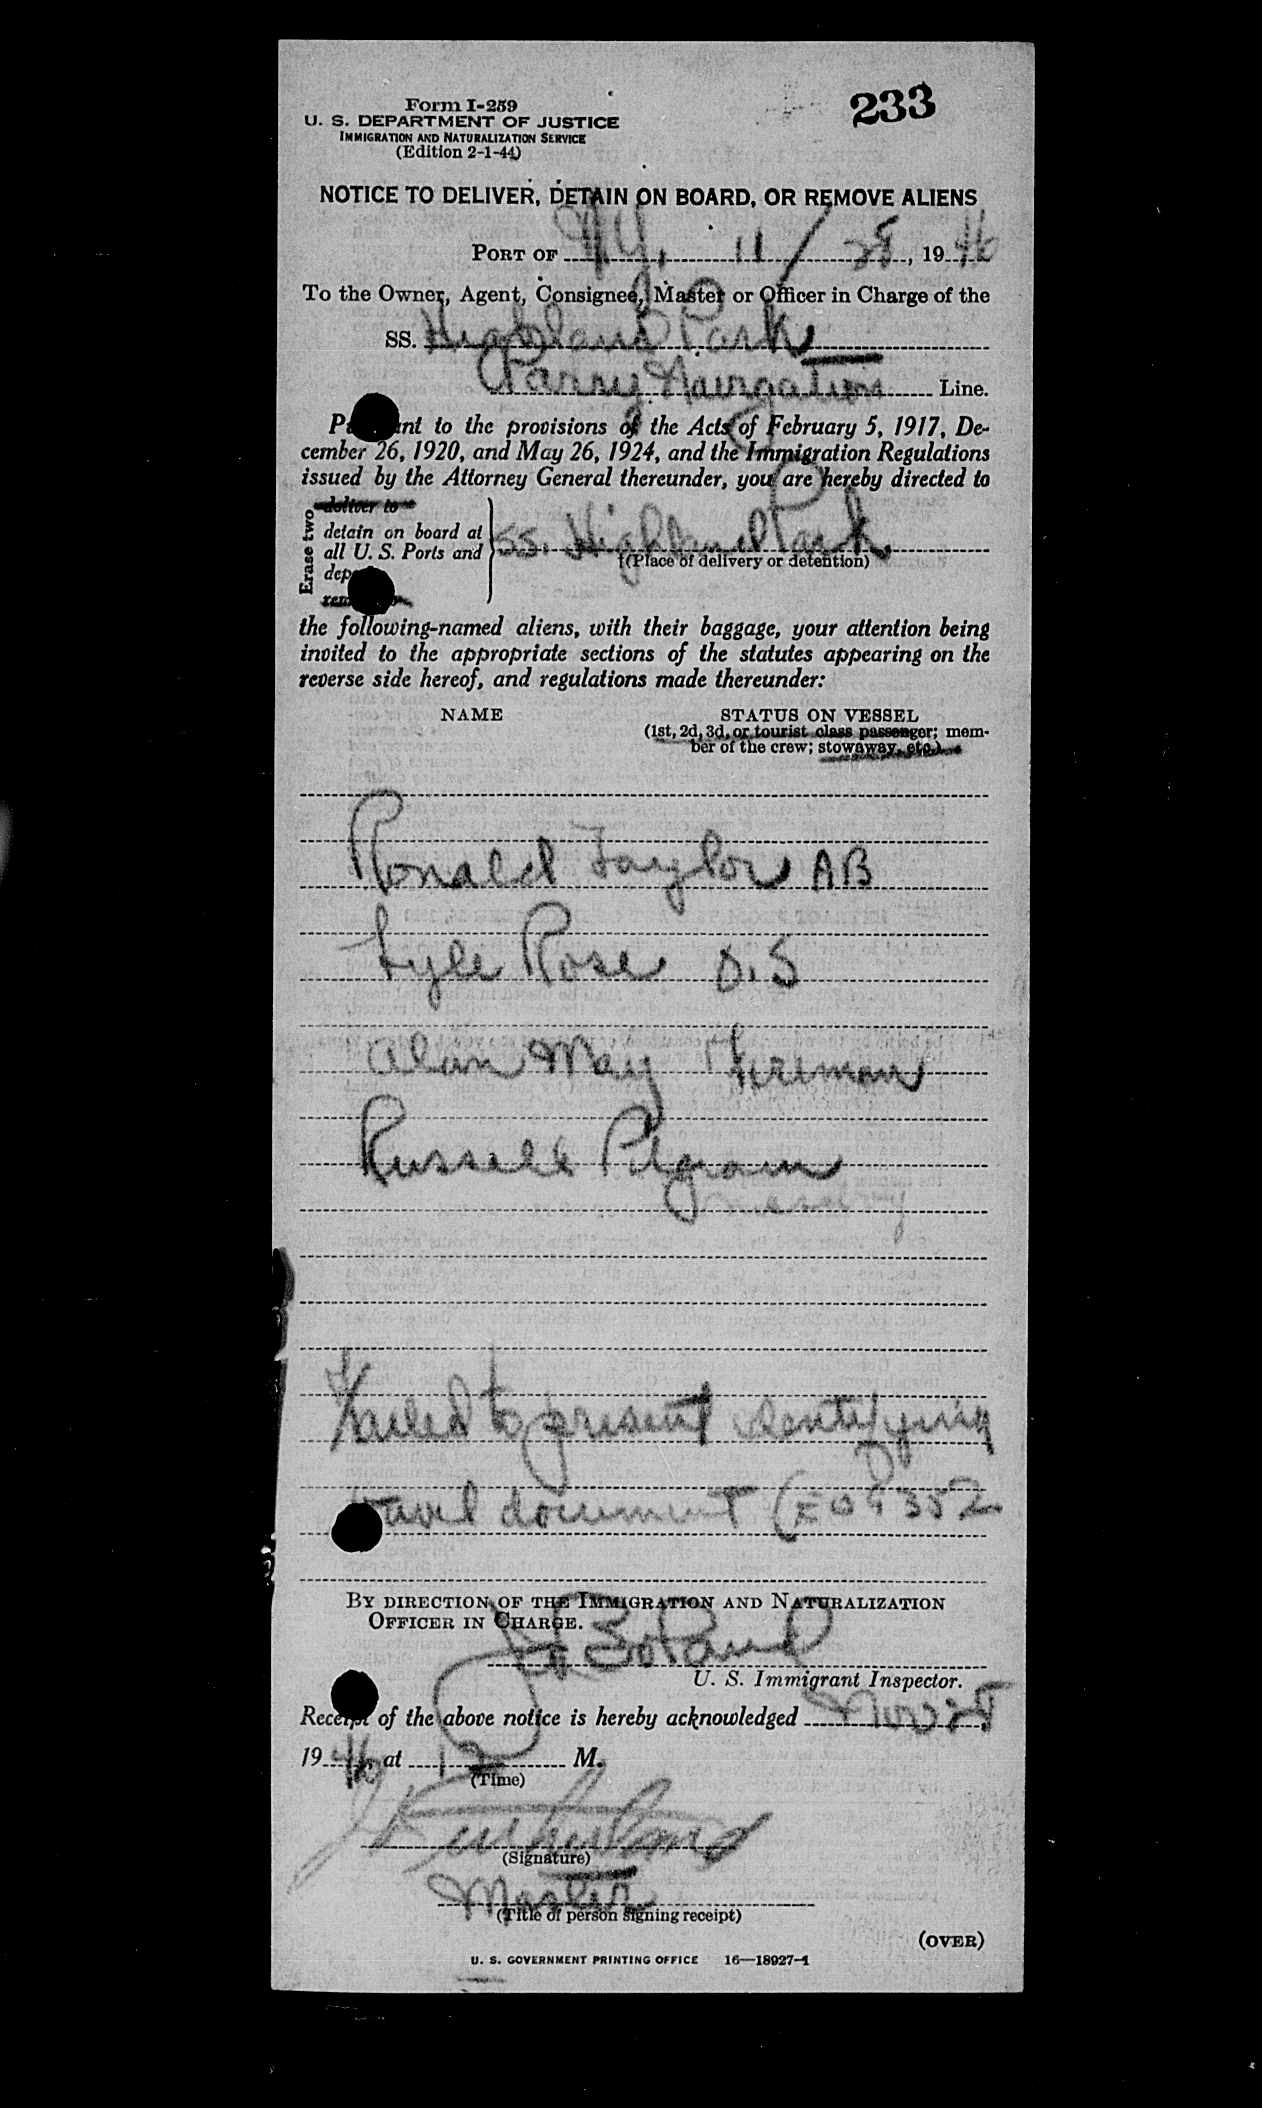 233
Form I-259
U. S. DEPARTMENT OF JUSTICE
IMMIGRATION AND NATURALIZATION SERVICE
(Edition 2-1-44)
NOTICE TO DELIVER, DETAIN ON BOARD, OR REMOVE ALIENS
PORT OF NY, 11/28, 1946
To the Owner, Agent, Consignee, Master or Officer in Charge of the
SS. Highland Park
Parry Navigation Line.
to the provisions of the Acts of February 5, 1917, De-
cember 26, 1920, and May 26, 1924, and the Immigration Regulations
issued by the Attorney General thereunder, you are hereby directed to
Erase two
deliver to
detain on board at
all U. S. Ports and SS. Highland Park
(Place of delivery or detention)
the following-named aliens, with their baggage, your attention being
invited to the appropriate sections of the statutes appearing on the
reverse side hereof, and regulations made thereunder:
NAME STATUS ON VESSEL
(1st, 2d, 3d, or tourist class passenger; mem-
ber of the crew; stowaway, etc.)
Ronald Taylor AB
Lyle Rose O.S
Alan May Fireman
Russell Pilgram
Failed to present identifying
travel document (EO 9352
BY DIRECTION OF THE IMMIGRATION AND NATURALIZATION
OFFICER IN CHARGE.
Boland
U. S. Immigrant Inspector.
Receipt of the above notice is hereby acknowledged Nov 28
1946, at 12 M.
(Time)
(Signature)
Master
(Title of person signing receipt)
(OVER)
U. S. GOVERNMENT PRINTING OFFICE 16—18927-1